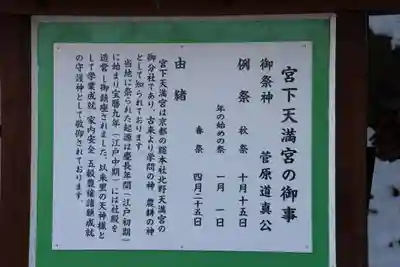 宮下天満宮の御事
御祭神 菅原道真公
例祭 秋祭 十月十五日
年の始めの祭 一月一日
春祭 四月二十五日
由緒
宮下天満宮は京都の総本社北野天満宮の
御分社であり、古来より学問の神 農耕の神
として知られております。
当地に祭られた起源は慶長年間(江戸初期)
に始まり宝暦九年(江戸中期)には社殿を
造営し御鎮座されました。以来里の天神様と
して学業成就 家内安全 五穀豊穣諸願成就
の守護神として敬仰されております。